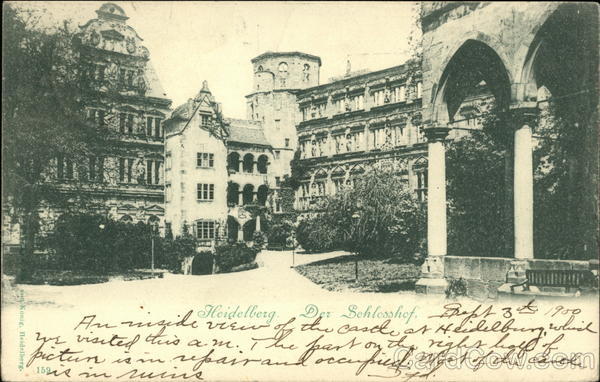 Heidelberg. Der Schlosshof.
Sept 3th 1900
An inside view of the castle at Heidelburg, which
we visited this a.m. The part on the right half of
picture is in repair and occupied,
is in ruins
König, Heidelberg.
159
CardCow.com